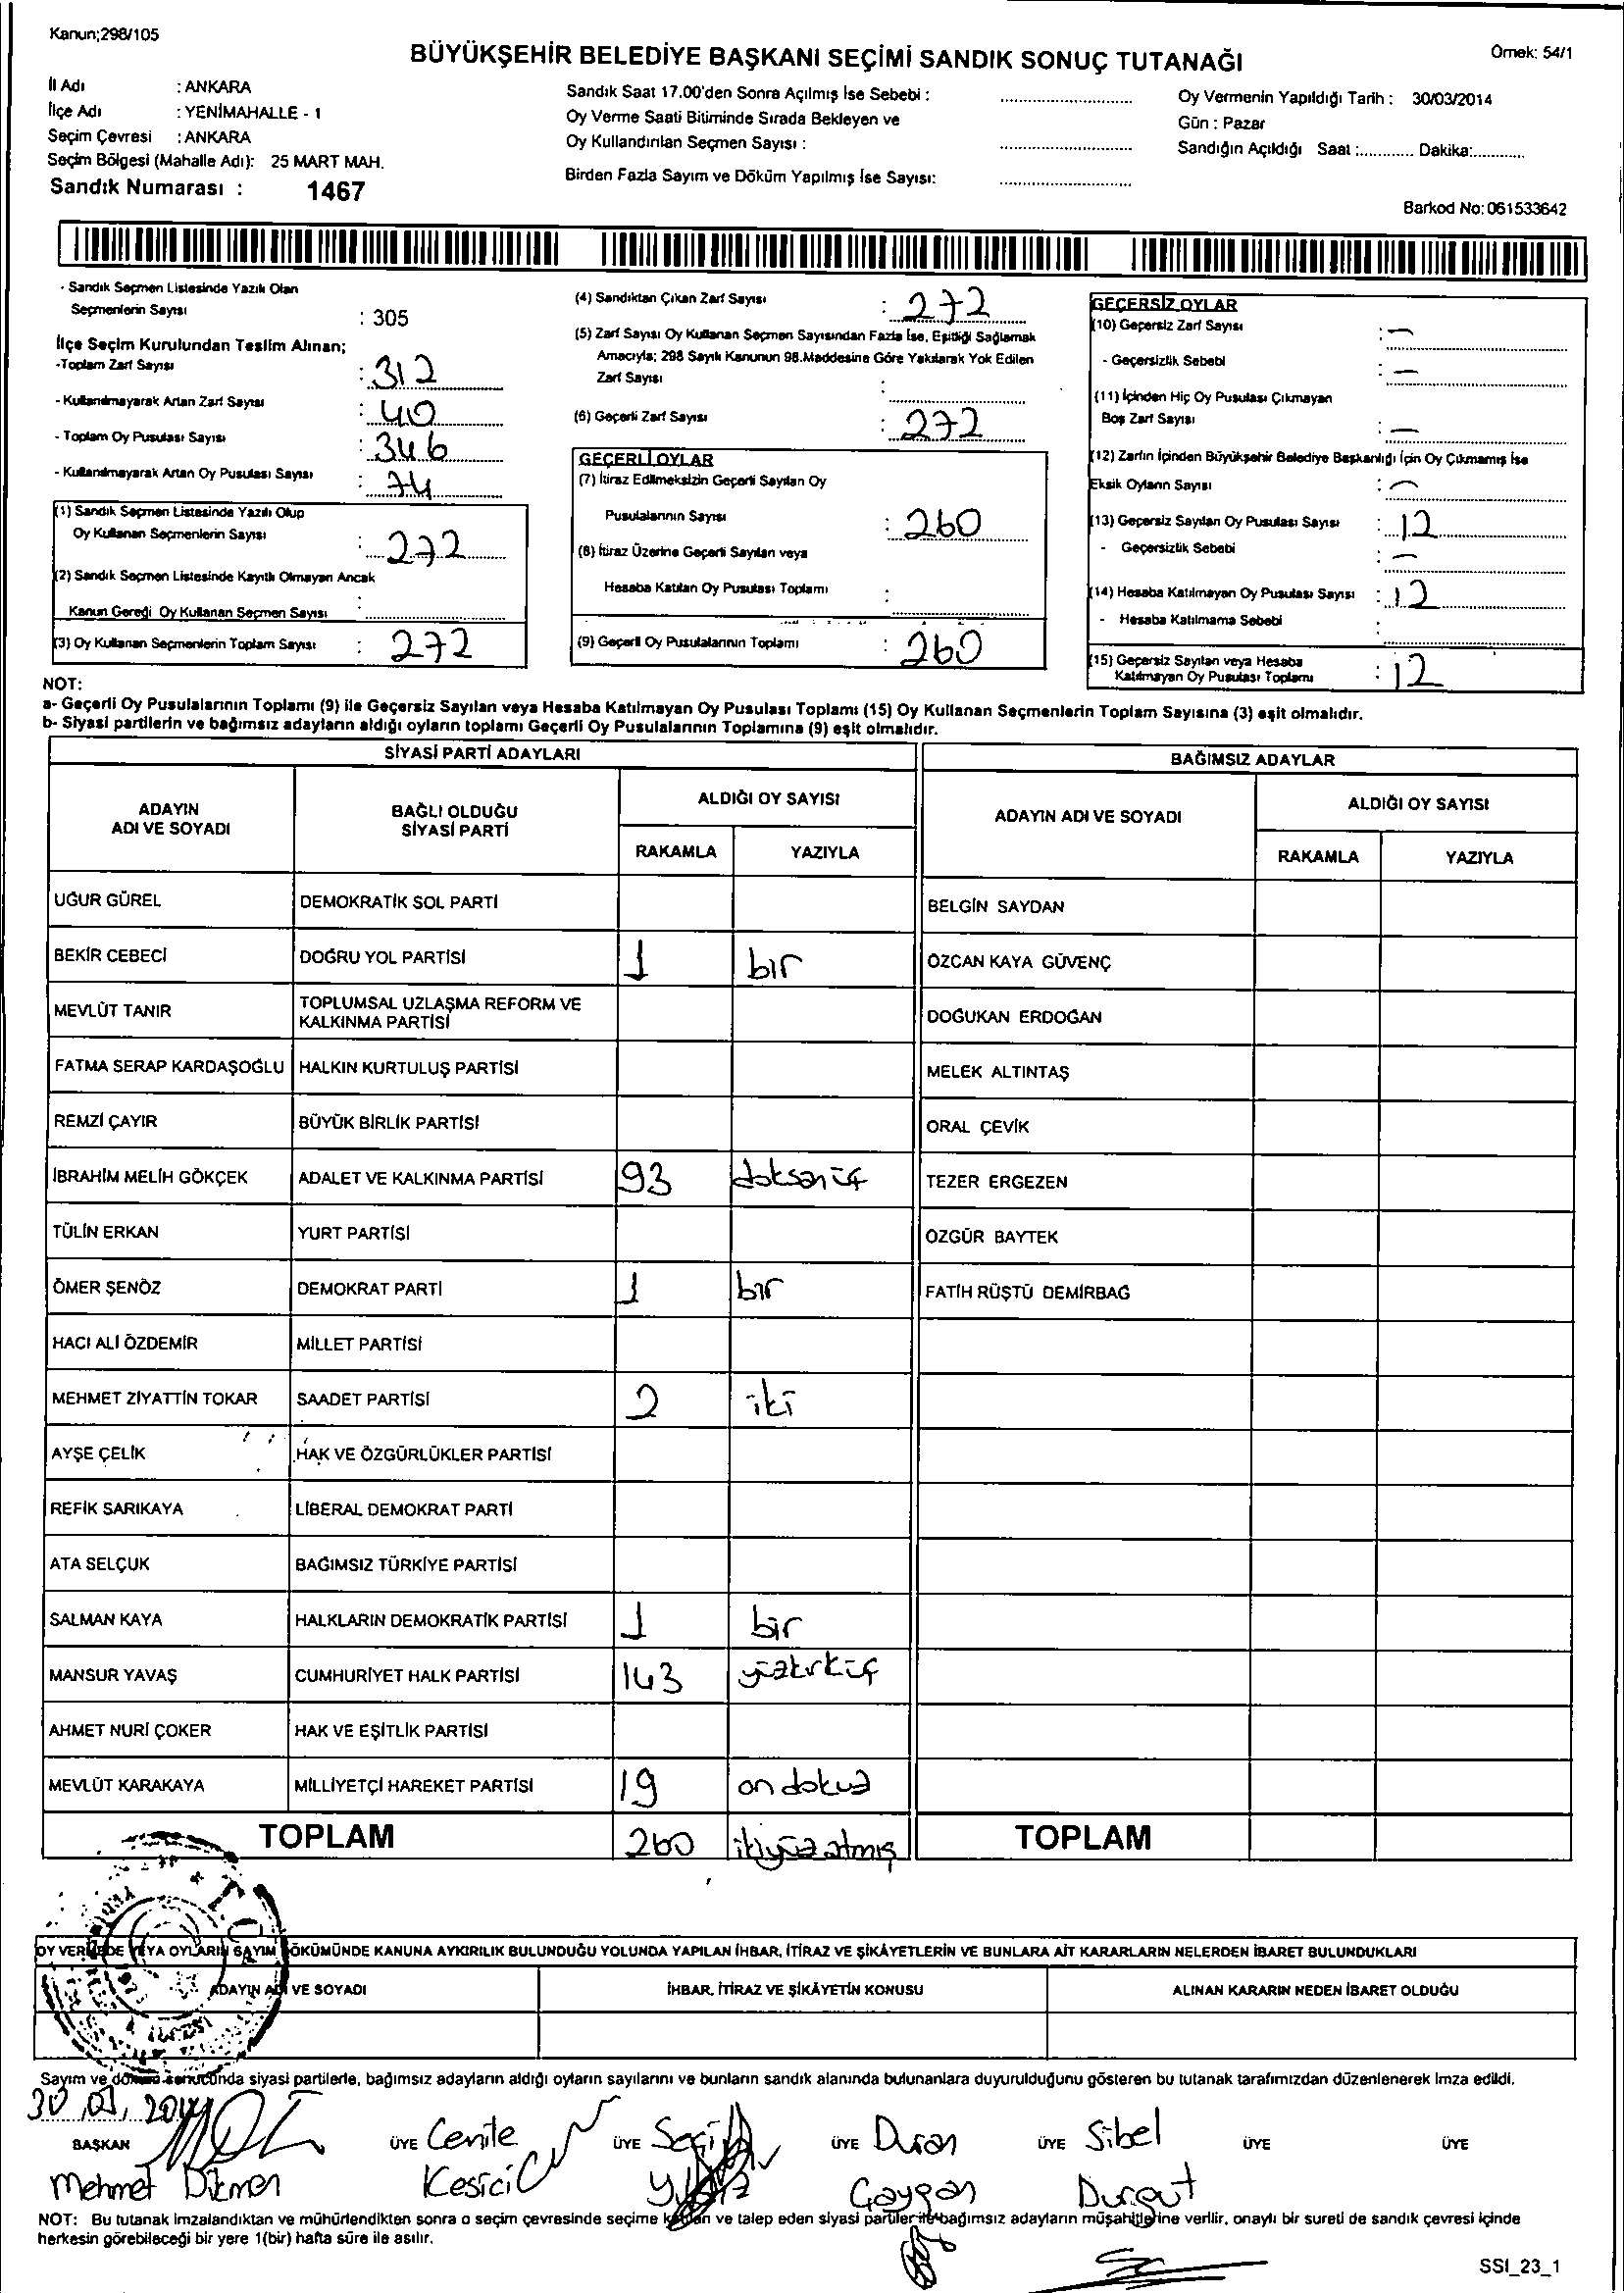 Kanun;298/105
BÜYÜKŞEHİR BELEDİYE BAŞKANI SEÇİMİ SANDIK SONUÇ TUTANAĞI
Örnek: 54/1
İl Adı : ANKARA
İlçe Adı : YENİMAHALLE - 1
Seçim Çevresi : ANKARA
Seçim Bölgesi (Mahalle Adı): 25 MART MAH.
Sandık Numarası : 1467
Sandık Saat 17.00'den Sonra Açılmış İse Sebebi :
Oy Verme Saati Bitiminde Sırada Bekleyen ve
Oy Kullandırılan Seçmen Sayısı :
Birden Fazla Sayım ve Döküm Yapılmış İse Sayısı:
Oy Vermenin Yapıldığı Tarih : 30/03/2014
Gün : Pazar
Sandığın Açıldığı Saat :............ Dakika:............
Barkod No: 061533642
- Sandık Seçmen Listesinde Yazılı Olan
Seçmenlerin Sayısı : 305
İlçe Seçim Kurulundan Teslim Alınan;
-Toplam Zarf Sayısı : 312
- Kullanılmayarak Artan Zarf Sayısı : 40
- Toplam Oy Pusulası Sayısı : 346
- Kullanılmayarak Artan Oy Pusulası Sayısı : 74
(1) Sandık Seçmen Listesinde Yazılı Olup
Oy Kullanan Seçmenlerin Sayısı : 272
(2) Sandık Seçmen Listesinde Kayıtlı Olmayan Ancak
Kanun Gereği Oy Kullanan Seçmen Sayısı :
(3) Oy Kullanan Seçmenlerin Toplam Sayısı : 272
(4) Sandıktan Çıkan Zarf Sayısı : 272
(5) Zarf Sayısı Oy Kullanan Seçmen Sayısından Fazla İse, Eşitliği Sağlamak
Amacıyla; 298 Sayılı Kanunun 98.Maddesine Göre Yakılarak Yok Edilen
Zarf Sayısı :
(6) Geçerli Zarf Sayısı : 272
GEÇERLİ OYLAR
(7) İtiraz Edilmeksizin Geçerli Sayılan Oy
Pusulalarının Sayısı : 260
(8) İtiraz Üzerine Geçerli Sayılan veya
Hesaba Katılan Oy Pusulası Toplamı :
(9) Geçerli Oy Pusulalarının Toplamı : 260
GEÇERSİZ OYLAR
(10) Geçersiz Zarf Sayısı : —
- Geçersizlik Sebebi : —
(11) İçinden Hiç Oy Pusulası Çıkmayan
Boş Zarf Sayısı : —
(12) Zarfın İçinden Büyükşehir Belediye Başkanlığı İçin Oy Çıkmamış İse
Eksik Oyların Sayısı : —
(13) Geçersiz Sayılan Oy Pusulası Sayısı : 12
- Geçersizlik Sebebi : —
(14) Hesaba Katılmayan Oy Pusulası Sayısı : 12
- Hesaba Katılmama Sebebi :
(15) Geçersiz Sayılan veya Hesaba
Katılmayan Oy Pusulası Toplamı : 12
NOT:
a- Geçerli Oy Pusulalarının Toplamı (9) ile Geçersiz Sayılan veya Hesaba Katılmayan Oy Pusulası Toplamı (15) Oy Kullanan Seçmenlerin Toplam Sayısına (3) eşit olmalıdır.
b- Siyasi partilerin ve bağımsız adayların aldığı oyların toplamı Geçerli Oy Pusulalarının Toplamına (9) eşit olmalıdır.
SİYASİ PARTİ ADAYLARI
ADAYIN ADI VE SOYADI BAĞLI OLDUĞU SİYASİ PARTİ ALDIĞI OY SAYISI
RAKAMLA YAZIYLA
UĞUR GÜREL DEMOKRATİK SOL PARTİ
BEKİR CEBECİ DOĞRU YOL PARTİSİ 1 bir
MEVLÜT TANIR TOPLUMSAL UZLAŞMA REFORM VE KALKINMA PARTİSİ
FATMA SERAP KARDAŞOĞLU HALKIN KURTULUŞ PARTİSİ
REMZİ ÇAYIR BÜYÜK BİRLİK PARTİSİ
İBRAHİM MELİH GÖKÇEK ADALET VE KALKINMA PARTİSİ 93 doksanüç
TÜLİN ERKAN YURT PARTİSİ
ÖMER ŞENÖZ DEMOKRAT PARTİ 1 bir
HACI ALİ ÖZDEMİR MİLLET PARTİSİ
MEHMET ZİYATTİN TOKAR SAADET PARTİSİ 2 iki
AYŞE ÇELİK HAK VE ÖZGÜRLÜKLER PARTİSİ
REFİK SARIKAYA LİBERAL DEMOKRAT PARTİ
ATA SELÇUK BAĞIMSIZ TÜRKİYE PARTİSİ
SALMAN KAYA HALKLARIN DEMOKRATİK PARTİSİ 1 bir
MANSUR YAVAŞ CUMHURİYET HALK PARTİSİ 143 yüzkırküç
AHMET NURİ ÇOKER HAK VE EŞİTLİK PARTİSİ
MEVLÜT KARAKAYA MİLLİYETÇİ HAREKET PARTİSİ 19 on dokuz
TOPLAM 260 ikiyüz atmış
BAĞIMSIZ ADAYLAR
ADAYIN ADI VE SOYADI ALDIĞI OY SAYISI
RAKAMLA YAZIYLA
BELGİN SAYDAN
ÖZCAN KAYA GÜVENÇ
DOĞUKAN ERDOĞAN
MELEK ALTINTAŞ
ORAL ÇEVİK
TEZER ERGEZEN
ÖZGÜR BAYTEK
FATİH RÜŞTÜ DEMİRBAĞ
TOPLAM
OY VERMEDE VEYA OYLARIN SAYIM DÖKÜMÜNDE KANUNA AYKIRILIK BULUNDUĞU YOLUNDA YAPILAN İHBAR, İTİRAZ VE ŞİKÂYETLERİN VE BUNLARA AİT KARARLARIN NELERDEN İBARET BULUNDUKLARI
ADAYIN ADI VE SOYADI İHBAR, İTİRAZ VE ŞİKÂYETİN KONUSU ALINAN KARARIN NEDEN İBARET OLDUĞU
Sayım ve döküm sonucunda siyasi partilerle, bağımsız adayların aldığı oyların sayılarını ve bunların sandık alanında bulunanlara duyurulduğunu gösteren bu tutanak tarafımızdan düzenlenerek imza edildi.
BAŞKAN ÜYE Cemile ÜYE ÜYE Duran ÜYE Sibel ÜYE ÜYE
Mehmet Dikmen Kesici Gaygan Durgut
NOT: Bu tutanak imzalandıktan ve mühürlendikten sonra o seçim çevresinde seçime katılan ve talep eden siyasi partiler ile bağımsız adayların müşahitlerine verilir, onaylı bir sureti de sandık çevresi içinde
herkesin görebileceği bir yere 1(bir) hafta süre ile asılır.
SSI_23_1